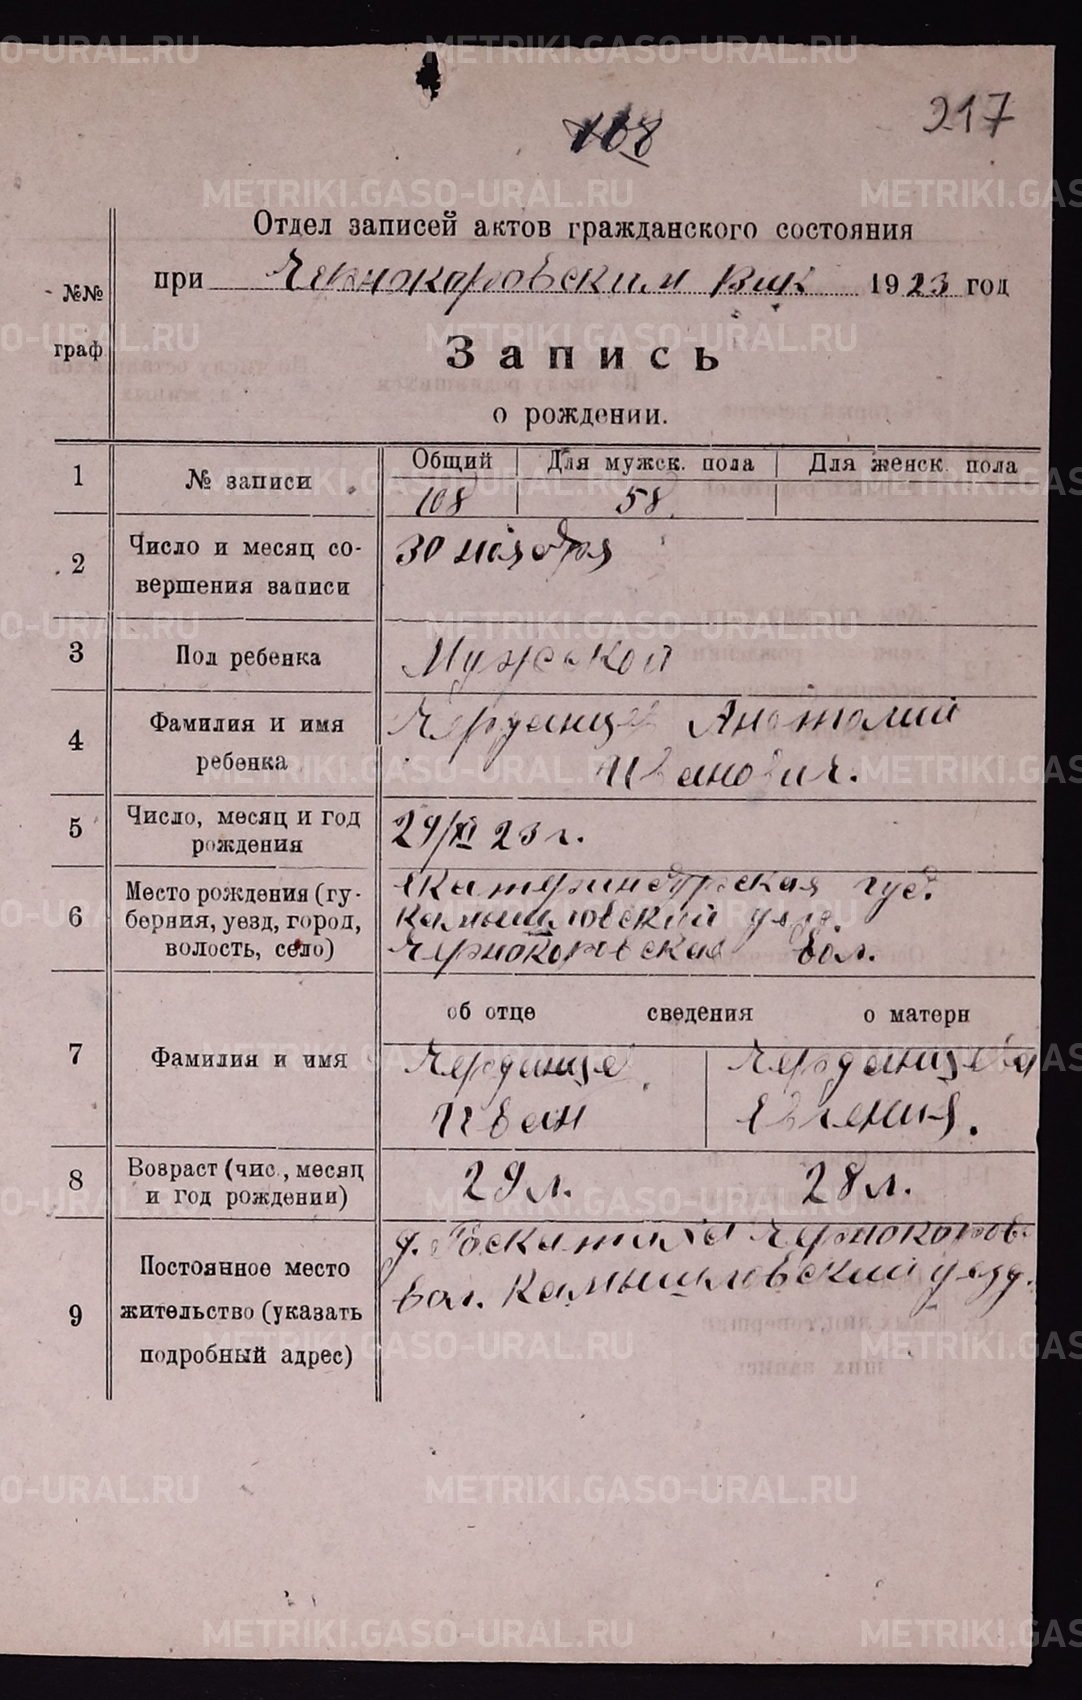 METRIKI.GASO-URAL.RU
108
217
Отдел записей актов гражданского состояния
при Чернокоровским Вик 1923 год
№№
граф
Запись
о рождении.
1 № записи Общий Для мужск. пола Для женск. пола
108 58
2 Число и месяц со-
вершения записи
30 ноября
3 Пол ребенка Мужской
4 Фамилия и имя
ребенка
Черданцев Анатолий
Иванович.
5 Число, месяц и год
рождения
29/XI 23 г.
6 Место рождения (гу-
берния, уезд, город,
волость, село)
Екатеринбургская губ.
Камышловский уезд.
Чернокоровская вол.
об отце сведения о матери
7 Фамилия и имя
Черданцев Черданцева
Иван Евгения.
8 Возраст (чис., месяц
и год рождении)
29 л. 28 л.
9 Постоянное место
жительство (указать
подробный адрес)
д. Раскатиха Чернокоров.
вол. Камышловский уезд.